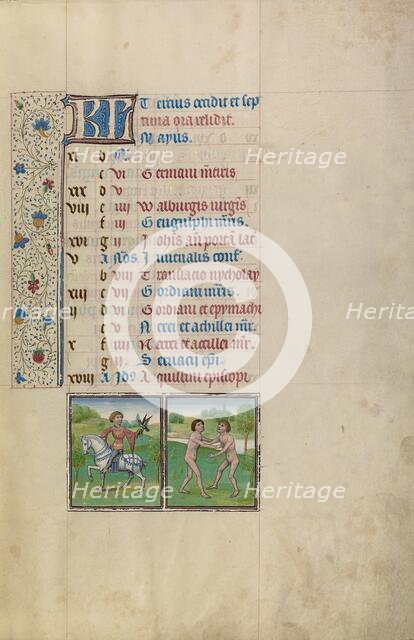 KL Tercius occidit et sep
tima ora relidit.
Mayus.
xi b
c vi Germani m̄tiris
xix d v
viii e iiij Walburgis virg̃is
f iij Gengulphi m̃ris.
xvi g ij Joh̃is añ portã lat
v A Nõs. Juuenalis conf.
b viij Translacio nycholay
xiii c vij Gordiani m̃ris.
ij d vi Gordiani et epymachi
e v Nerei et achillei m̃r.
x f iiij Nerei et accillei m̃r.
g iij Seruacij ep̃i
xviii A Jd9 Aquilini episcopi
Heritage Heritage
Heritage Heritage
Heritage Heritage